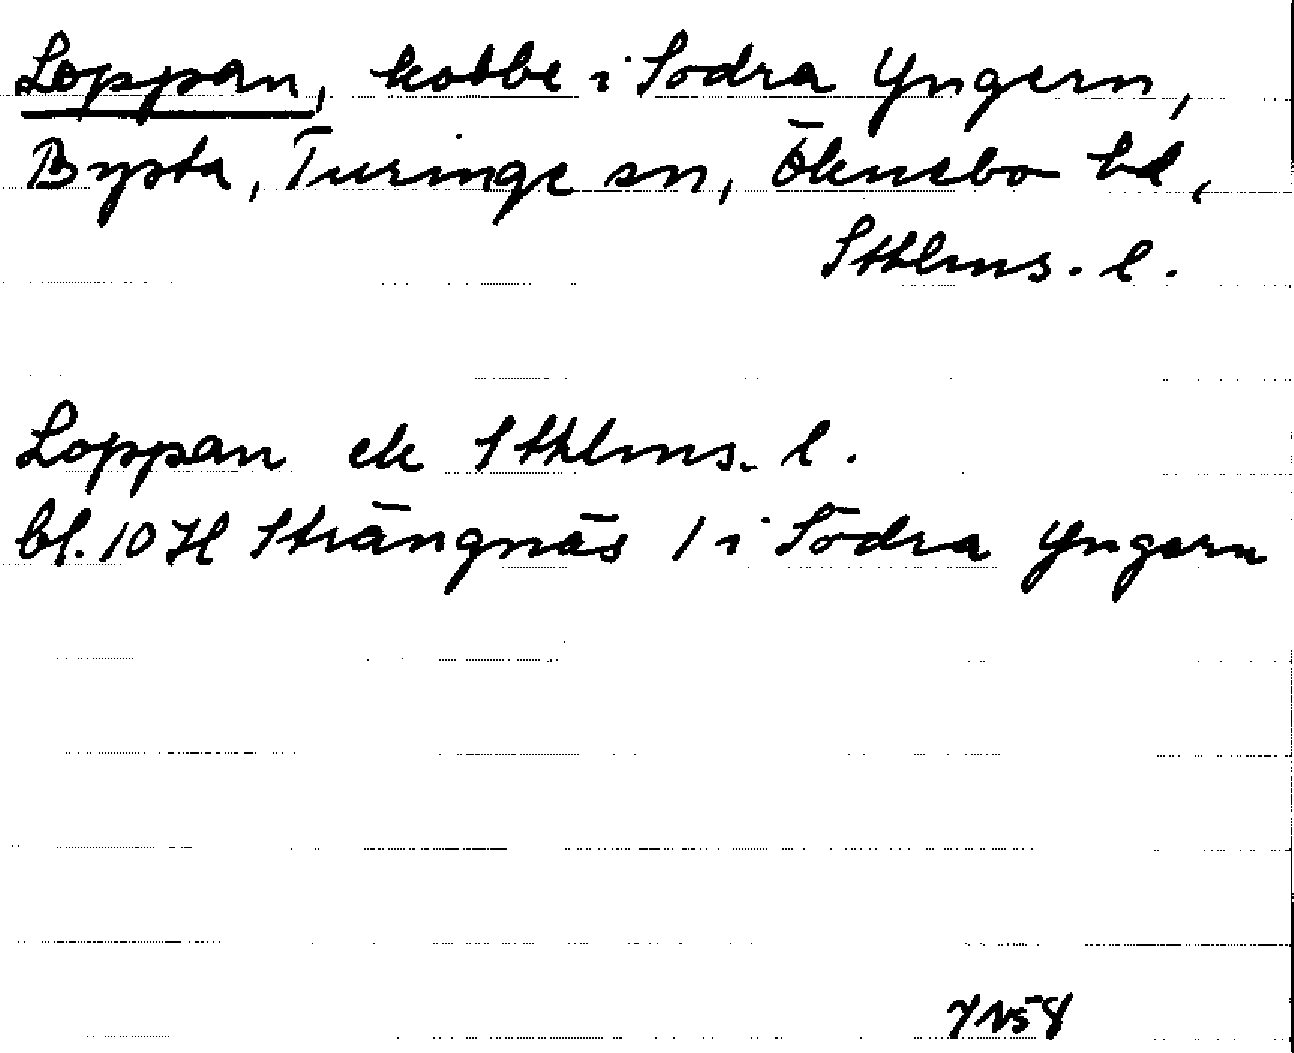 Loppan, kobbe i Södra Yngern,
Bysta, Turinge sn, Öknebo hd,
Sthlms. l.
Loppan ek Sthlms. l.
bl. 10 H Strängnäs 1 i Södra Yngern